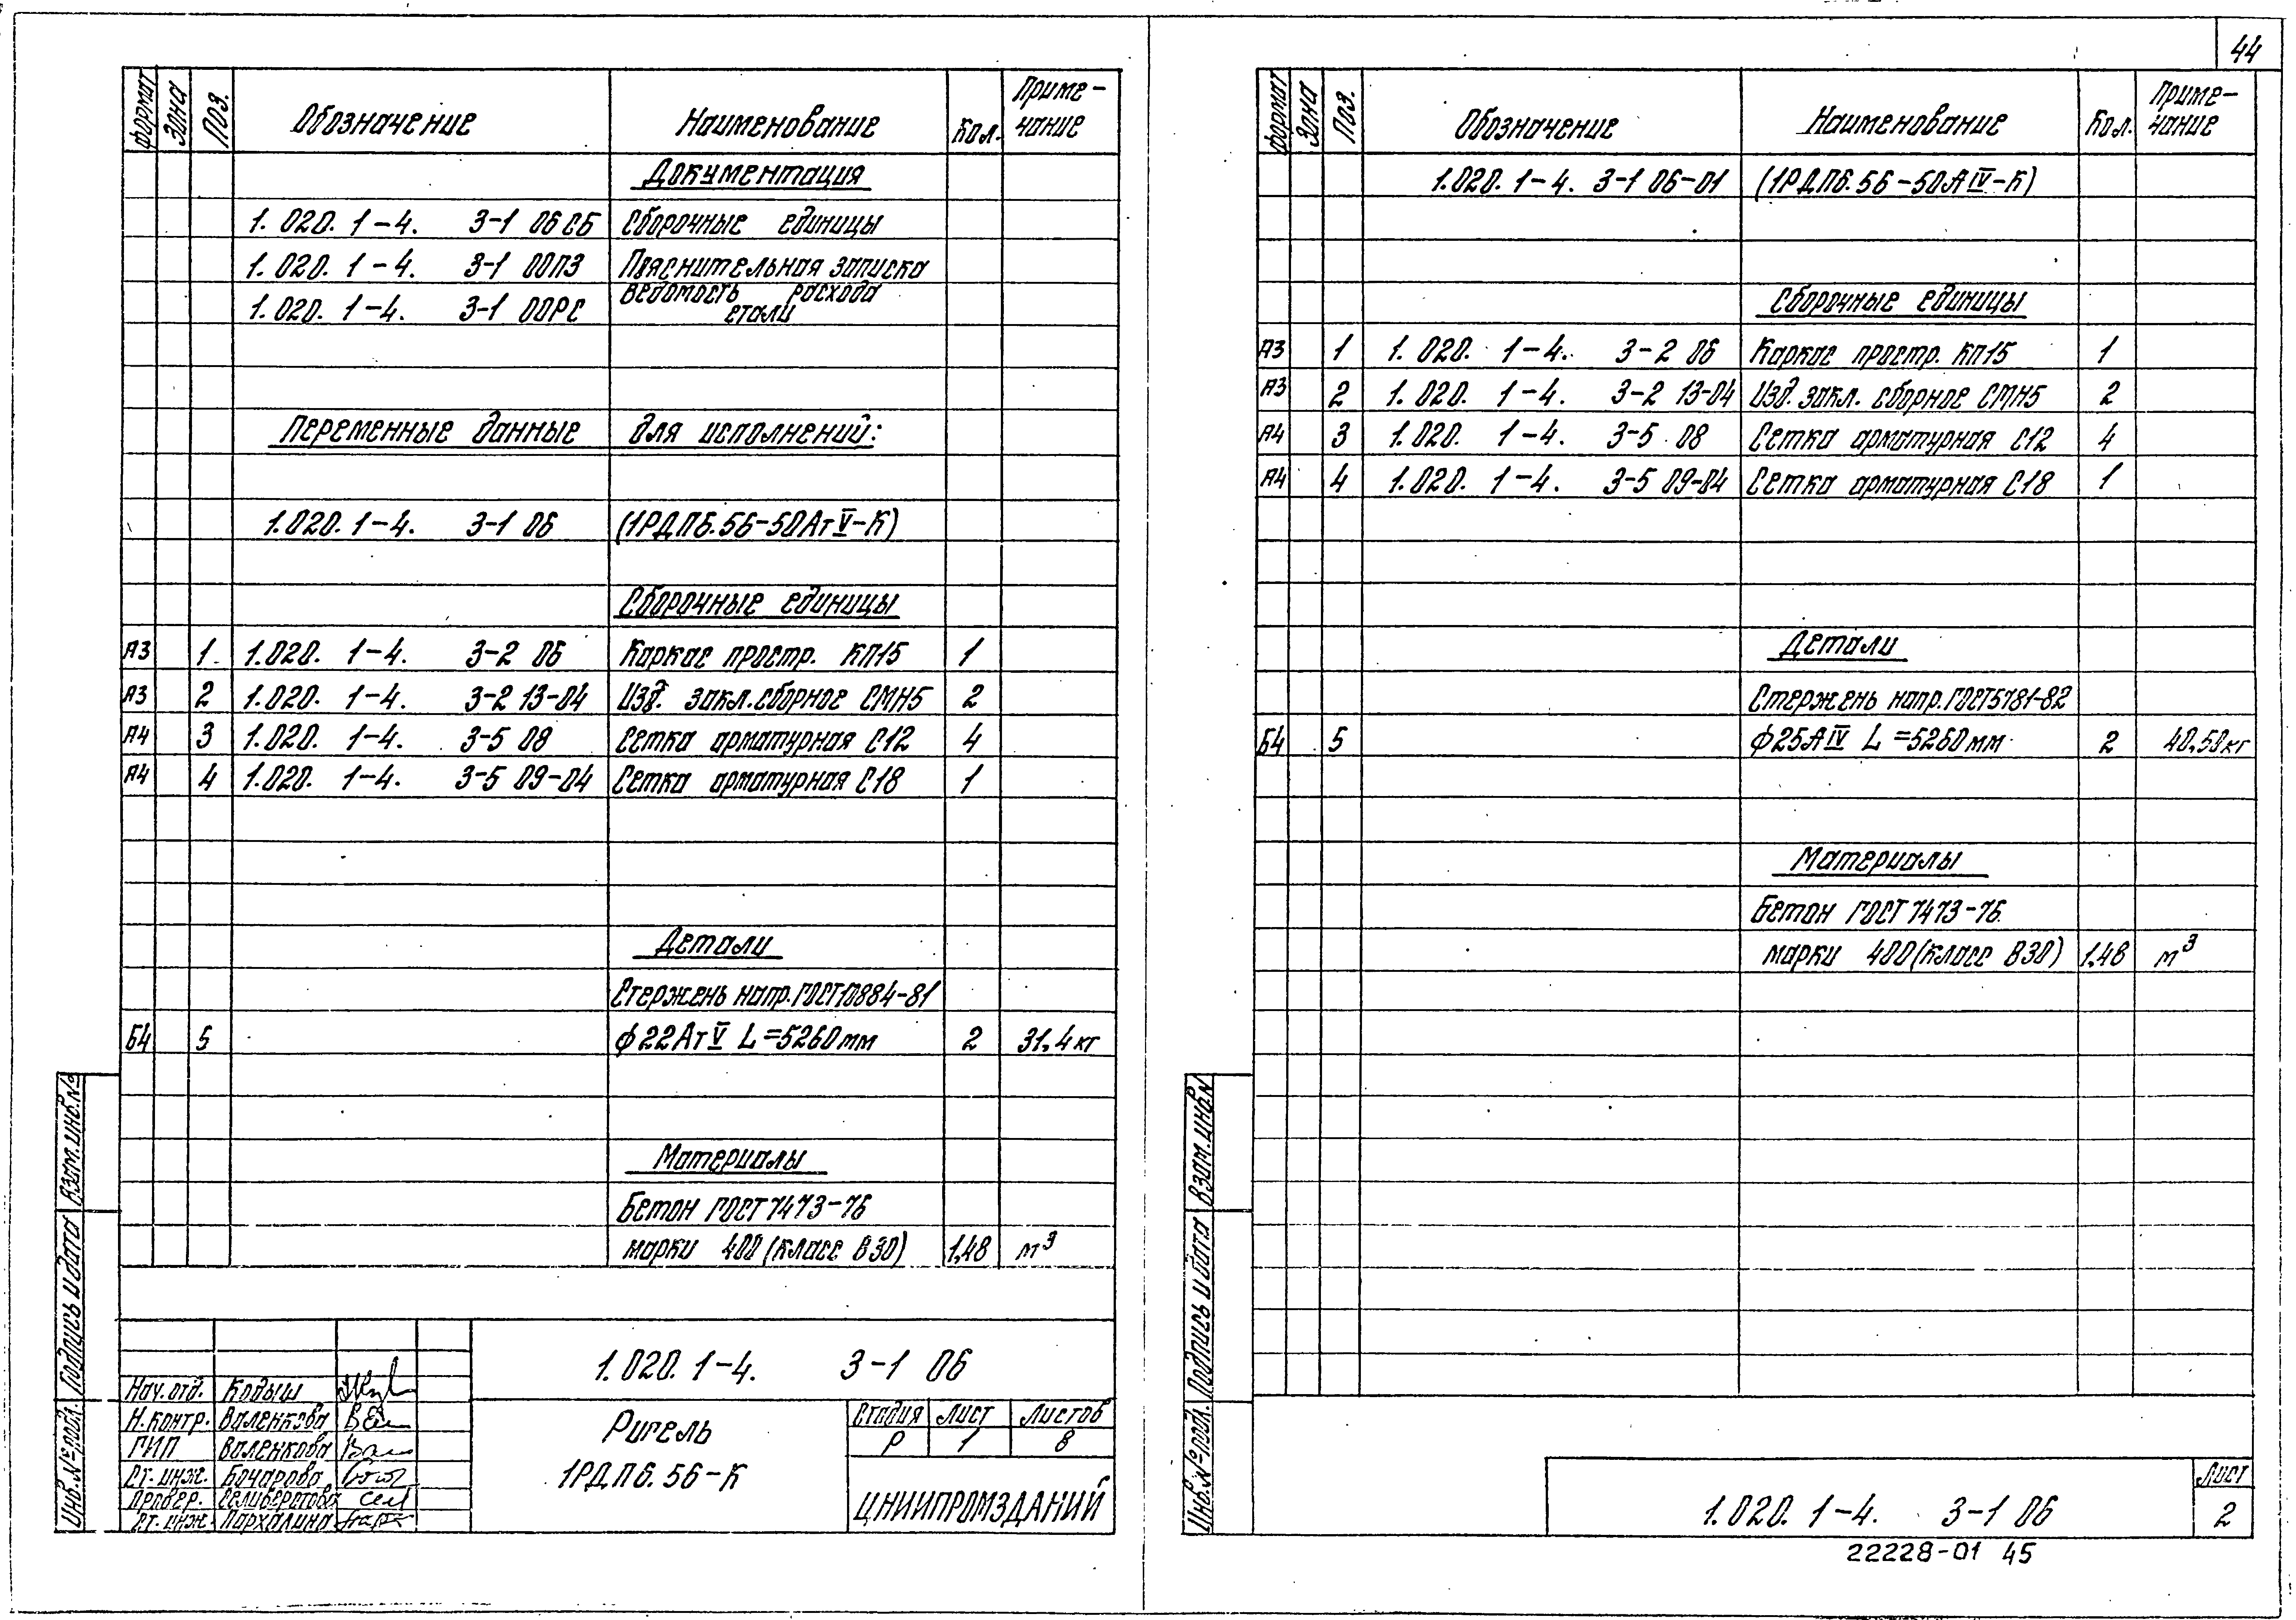 44
формат Зона Поз. Обозначение Наименование Кол. Приме-чание
Документация
1.020.1-4. 3-1 06СБ Сборочные единицы
1.020.1-4. 3-1 00ПЗ Пояснительная записка
1.020.1-4. 3-1 00РС Ведомость расхода стали
Переменные данные для исполнений:
1.020.1-4. 3-1 06 (1РДП6.56-50АтV-К)
Сборочные единицы
А3 1 1.020. 1-4. 3-2 06 Каркас простр. КП15 1
А3 2 1.020. 1-4. 3-2 13-04 Изд. закл. сборное СМН5 2
А4 3 1.020. 1-4. 3-5 08 Сетка арматурная С12 4
А4 4 1.020. 1-4. 3-5 09-04 Сетка арматурная С18 1
Детали
Стержень напр. ГОСТ10884-81
Б4 5 ϕ22АтV L=5260мм 2 31,4кг
Материалы
Бетон ГОСТ 7473-76
марки 400 (класс В30) 1,48 м³
Взам.инв.№
Подпись и дата
Инв.№ подл.
1.020.1-4. 3-1 06
Нач.отд. Кодыш
Н.контр. Валенкова
ГИП Валенкова
Ст.инж. Бочарова
Провер. Селиверстова
Ст.инж. Пархалина
Ригель
1РДП6.56-К
Стадия Лист Листов
Р 1 8
ЦНИИПРОМЗДАНИЙ
формат Зона Поз. Обозначение Наименование Кол. Приме-чание
1.020.1-4. 3-1 06-01 (1РДП6.56-50АIV-К)
Сборочные единицы
А3 1 1.020. 1-4. 3-2 06 Каркас простр. КП15 1
А3 2 1.020. 1-4. 3-2 13-04 Изд. закл. сборное СМН5 2
А4 3 1.020. 1-4. 3-5 08 Сетка арматурная С12 4
А4 4 1.020. 1-4. 3-5 09-04 Сетка арматурная С18 1
Детали
Стержень напр. ГОСТ5781-82
Б4 5 ϕ25АIV L=5260мм 2 40,50кг
Материалы
Бетон ГОСТ 7473-76
марки 400 (класс В30) 1,48 м³
Взам.инв.№
Подпись и дата
Инв.№ подл.
1.020.1-4. 3-1 06
Лист
2
22228-01 45